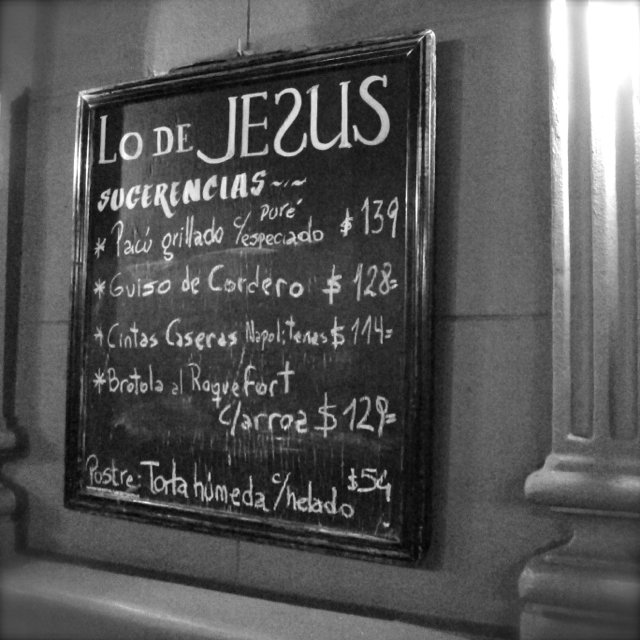 LO DE JESUS
SUGERENCIAS~~
puré
* Pacú grillado c/especiado $139
* Guiso de Cordero $ 128=
* Cintas Caseras Napolitanas $ 114=
* Brotola al Roquefort
c/arroz $ 129=
Postre: Torta húmeda c/helado $54